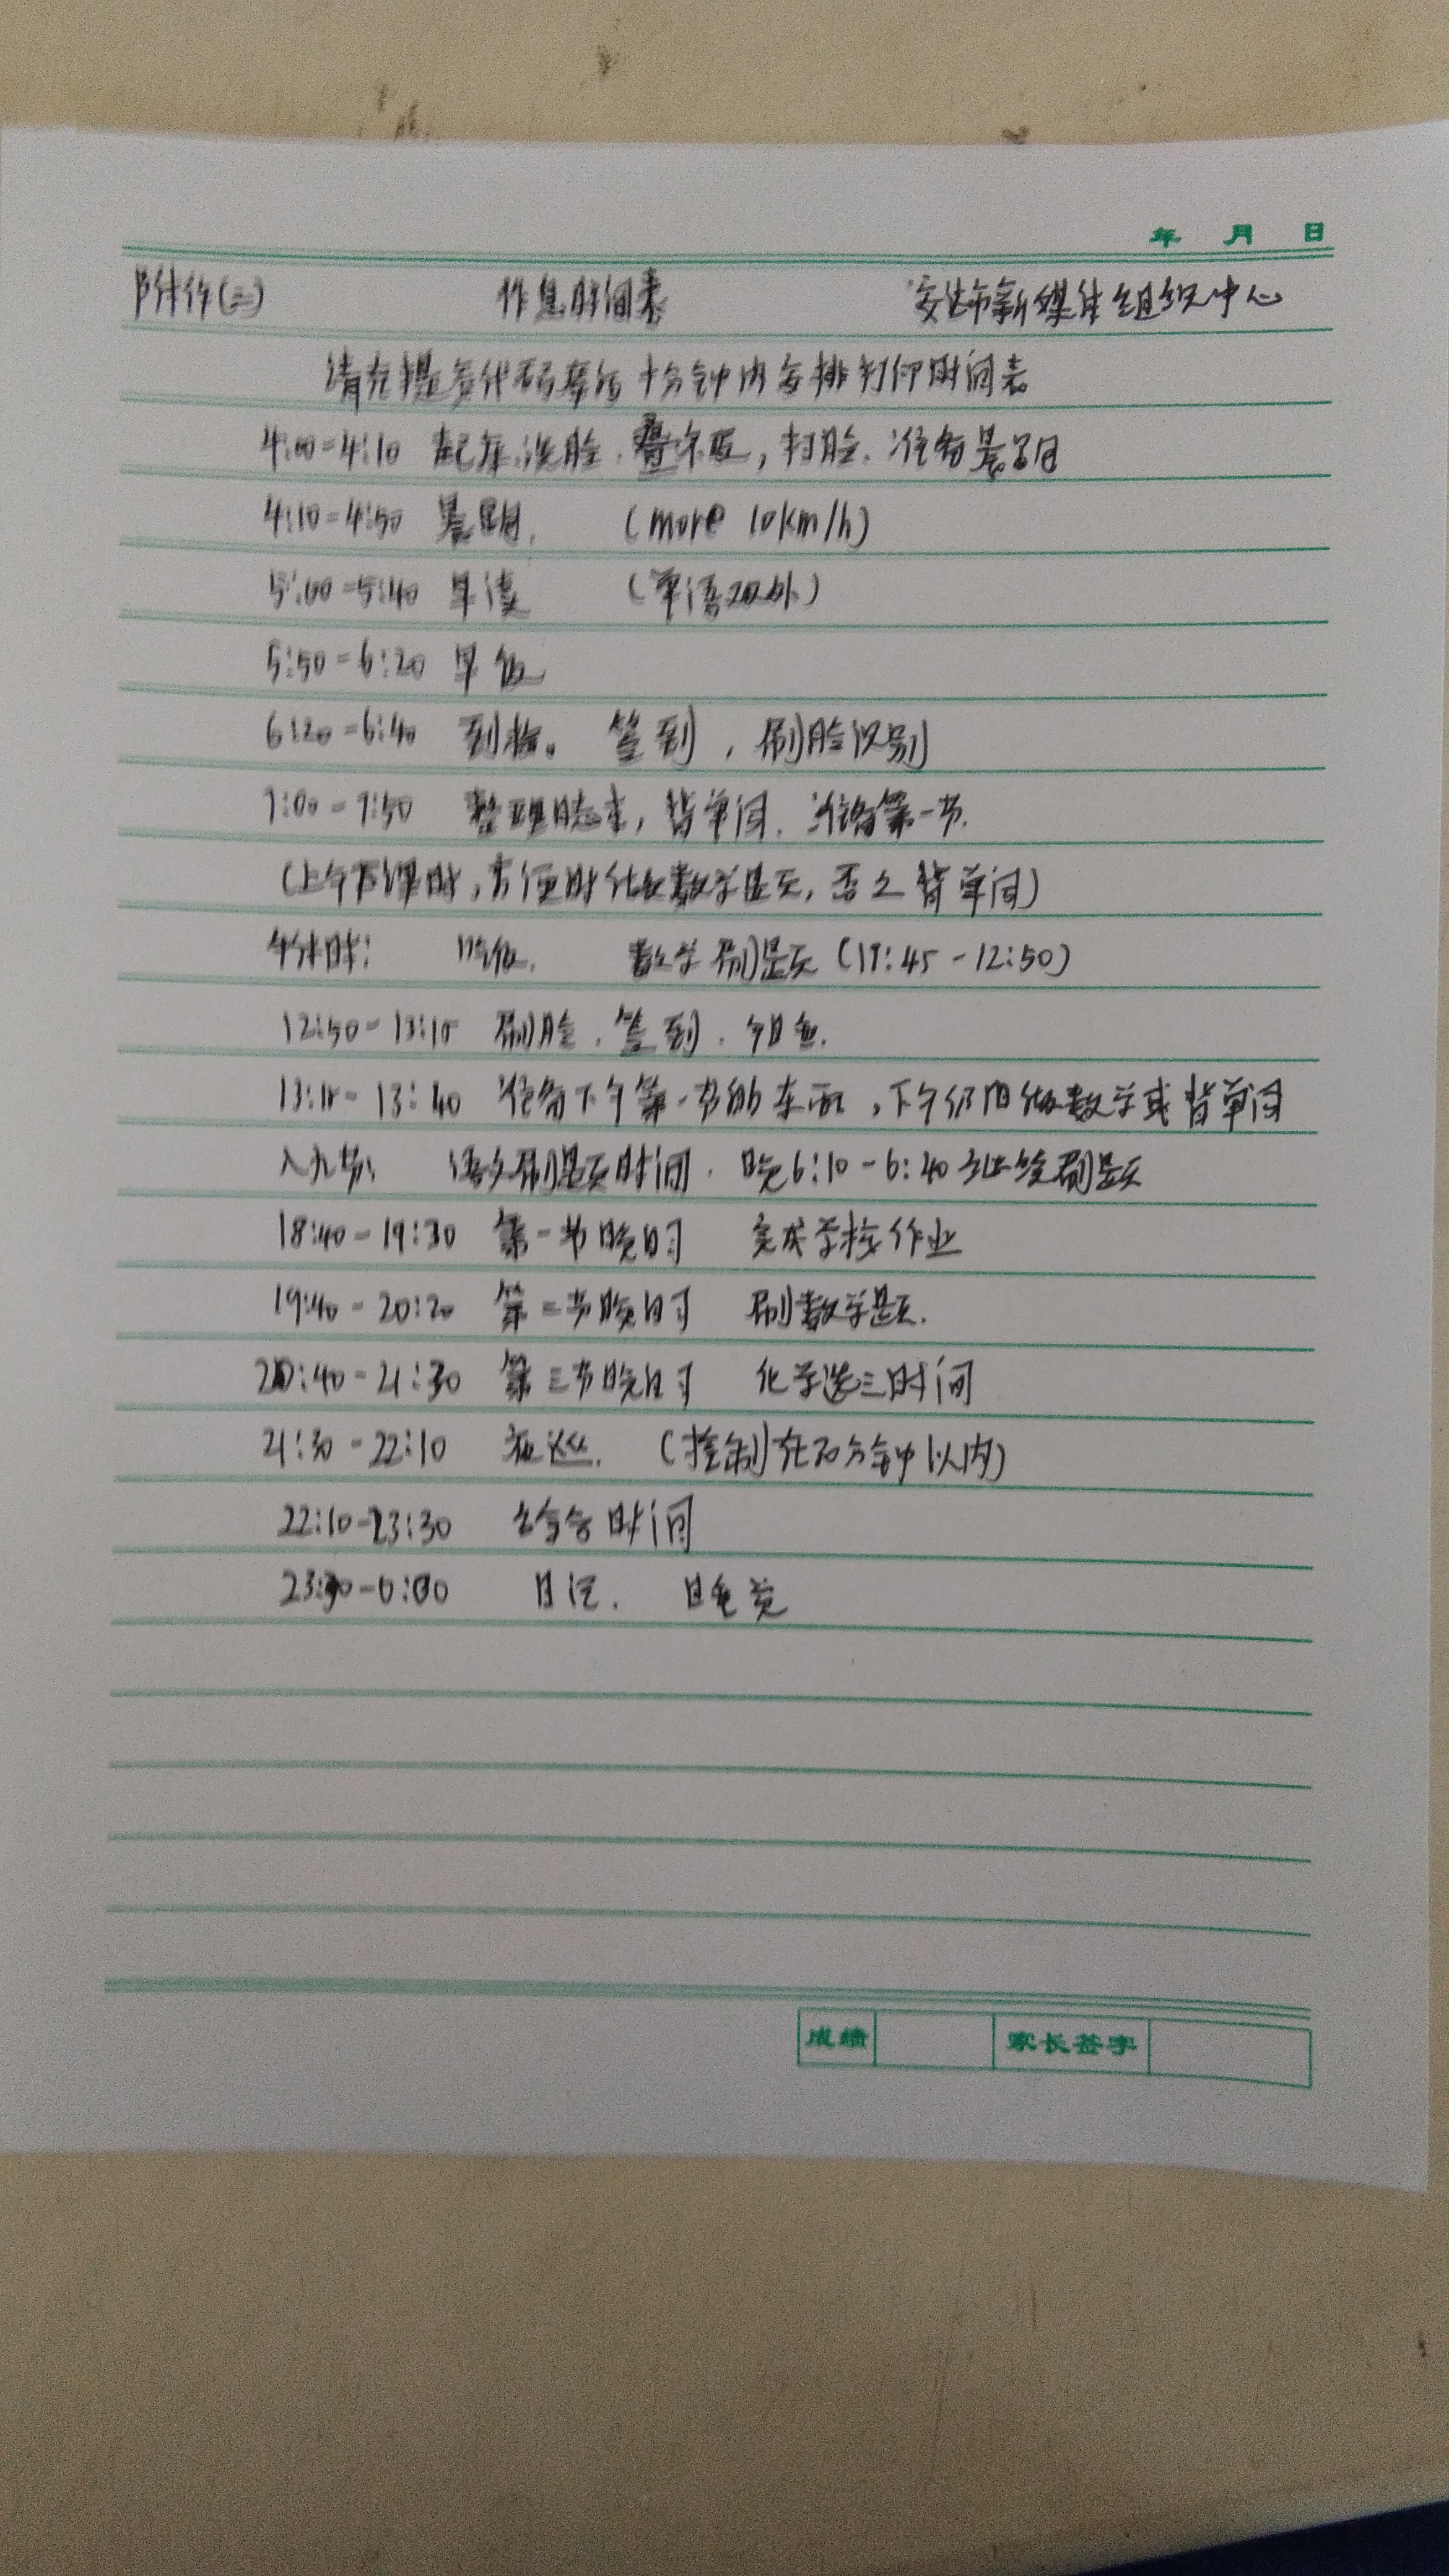 年 月 日
附件(二) 作息时间表 安达市新媒体组织中心
请在提交代码库后十分钟内安排打印时间表
4:00=4:10 起床.洗脸.叠尔被,打脸.准备晨跑
4:10=4:50 晨跑. (more 10km/h)
5:00=5:40 早读 (单语以外)
5:50=6:20 早饭
6:20=6:40 到校。签到,刷脸识别
7:00-7:50 整理,背单词.准备第一节.
(上午下课时,方便时做数学题,否之背单词)
午休时: 吃饭. 数学刷题(11:45-12:50)
12:50-13:10 刷脸.签到.
13:10-13:40 准备下午第一节的东西,下午仍旧做数学或背单词
八九节: 语文刷题时间.晚6:10-6:40继续刷题
18:40-19:30 第一节晚自习 完成学校作业
19:40-20:20 第二节晚自习 刷数学题.
20:40-21:30 第三节晚自习 化学选三时间
21:30-22:10 夜巡.(控制在20分钟以内)
22:10-23:30 综合时间
23:30-0:00 日记. 睡觉
成绩 家长签字